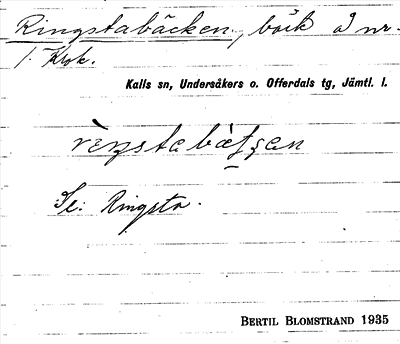 Ringstabäcken, bäck å nr.
1. Krok.
Kalls sn, Undersåkers o. Offerdals tg, Jämtl. l.
Se: Ringsta.
BERTIL BLOMSTRAND 1935